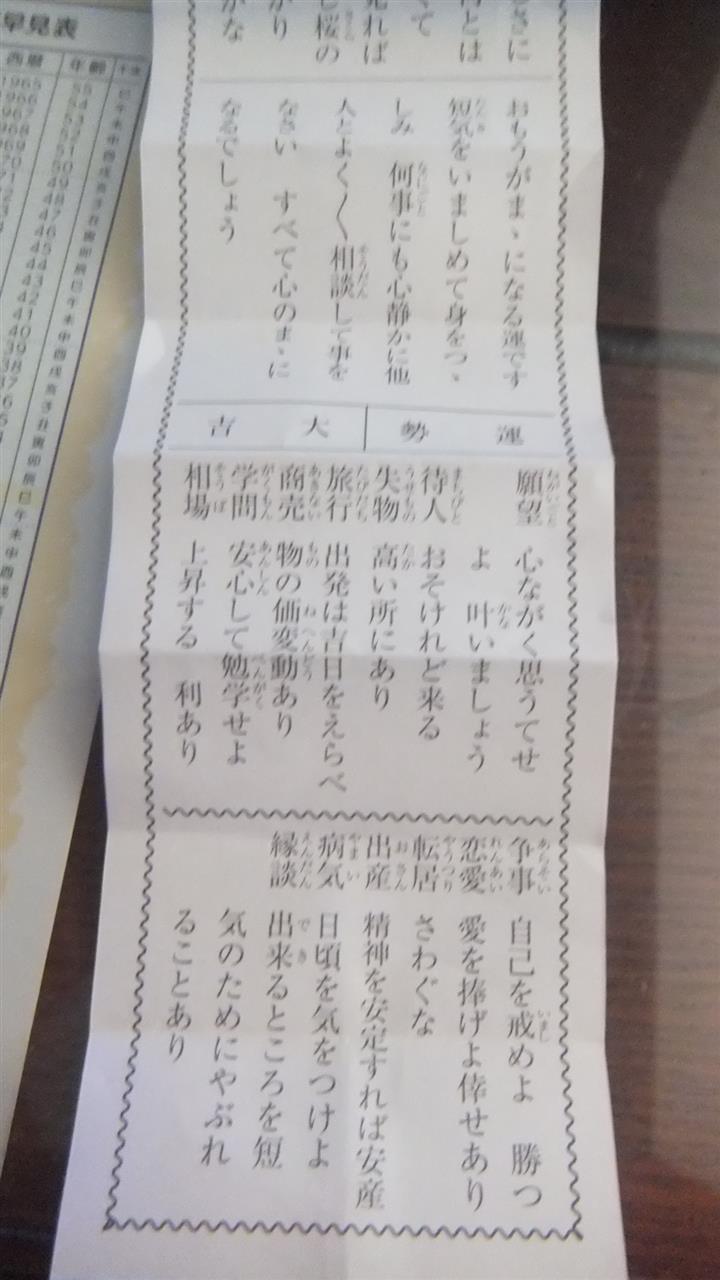 さに
とは
て
見れば
し桜の
がり
かな
おもうがまゝになる運です
短気をいましめて身をつゝ
しみ 何事にも心静かに他
人とよく〱相談して事を
なさい すべて心のまゝに
なるでしょう
運勢
大吉
願望 心ながく思うてせ
よ 叶いましょう
待人 おそけれど来る
失物 高い所にあり
旅行 出発は吉日をえらべ
商売 物の価変動あり
学問 安心して勉学せよ
相場 上昇する 利あり
争事 自己を戒めよ 勝つ
恋愛 愛を捧げよ倖せあり
転居 さわぐな
出産 精神を安定すれば安産
病気 日頃を気をつけよ
縁談 出来るところを短
気のためにやぶれ
ることあり
早見表
西暦 年齢 干支
1965 55 巳
1966 54 午